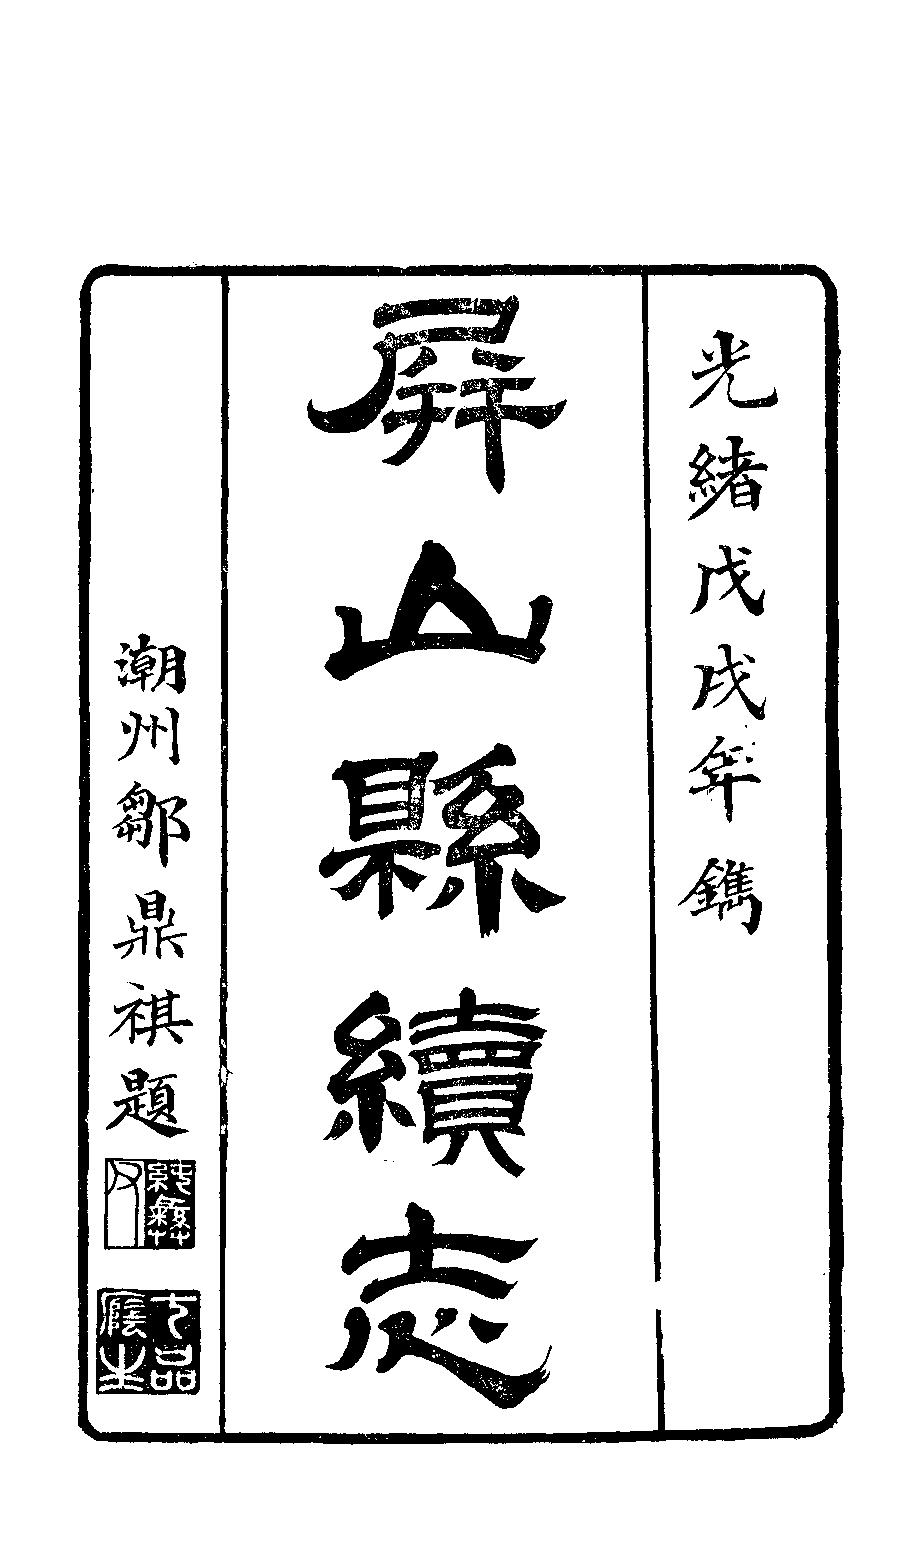 光緒戊戌年鐫
屏山縣續志
潮州鄒鼎祺題